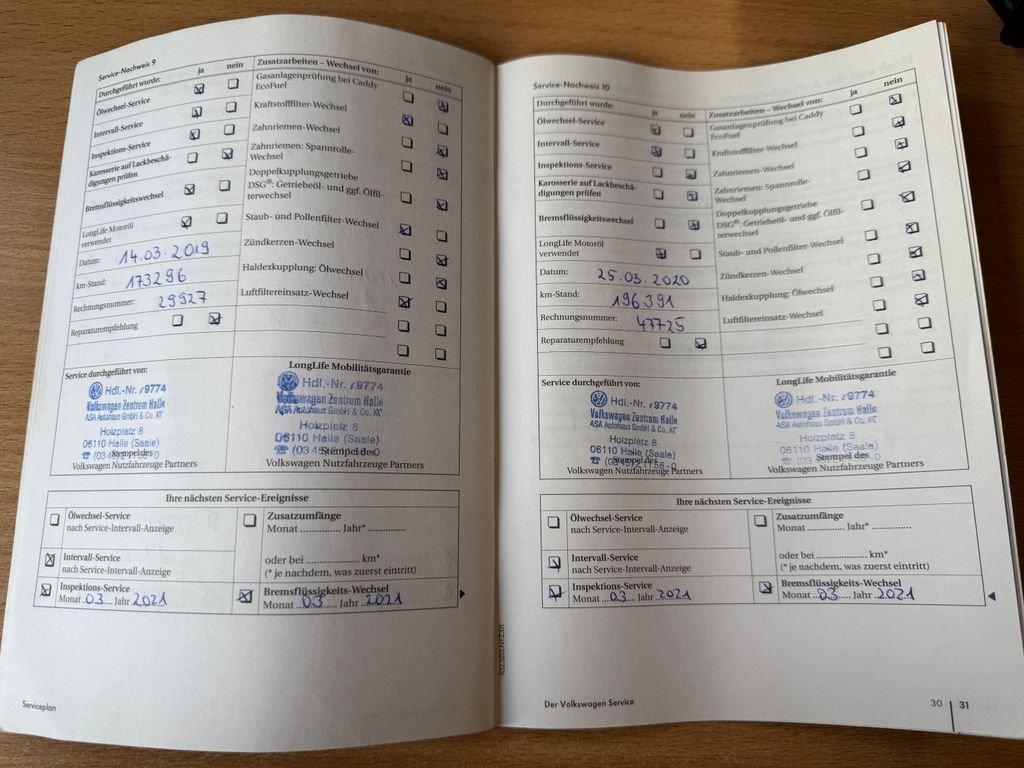 Service-Nachweis 9
Durchgeführt wurde: ja nein
Ölwechsel-Service
Intervall-Service
Inspektions-Service
Karosserie auf Lackbeschä-
digungen prüfen
Bremsflüssigkeitswechsel
LongLife Motoröl
verwendet
Datum: 14.03.2019
km-Stand: 173296
Rechnungsnummer: 29927
Reparaturempfehlung
Zusatzarbeiten – Wechsel von: ja nein
Gasanlagenprüfung bei Caddy
EcoFuel
Kraftstofffilter-Wechsel
Zahnriemen-Wechsel
Zahnriemen: Spannrolle-
Wechsel
Doppelkupplungsgetriebe
DSG®: Getriebeöl- und ggf. Ölfil-
terwechsel
Staub- und Pollenfilter-Wechsel
Zündkerzen-Wechsel
Haldexkupplung: Ölwechsel
Luftfiltereinsatz-Wechsel
Service durchgeführt von:
Hdl.-Nr. 9774
Volkswagen Zentrum Halle
ASA Autohaus GmbH & Co. KG
Holzplatz 8
06110 Halle (Saale)
Stempel des
Volkswagen Nutzfahrzeuge Partners
LongLife Mobilitätsgarantie
Hdl.-Nr. 9774
Volkswagen Zentrum Halle
ASA Autohaus GmbH & Co. KG
Holzplatz 8
06110 Halle (Saale)
Stempel des
Volkswagen Nutzfahrzeuge Partners
Ihre nächsten Service-Ereignisse
Ölwechsel-Service
nach Service-Intervall-Anzeige
Intervall-Service
nach Service-Intervall-Anzeige
Inspektions-Service
Monat 03 Jahr 2021
Zusatzumfänge
Monat ............... Jahr* ...............
oder bei .................... km*
(* je nachdem, was zuerst eintritt)
Bremsflüssigkeits-Wechsel
Monat 03 Jahr 2021
Serviceplan
102.5D3.NFZ.01
Service-Nachweis 10
Durchgeführt wurde: ja nein
Ölwechsel-Service
Intervall-Service
Inspektions-Service
Karosserie auf Lackbeschä-
digungen prüfen
Bremsflüssigkeitswechsel
LongLife Motoröl
verwendet
Datum: 25.03.2020
km-Stand: 196391
Rechnungsnummer: 47725
Reparaturempfehlung
Zusatzarbeiten – Wechsel von: ja nein
Gasanlagenprüfung bei Caddy
EcoFuel
Kraftstofffilter-Wechsel
Zahnriemen-Wechsel
Zahnriemen: Spannrolle-
Wechsel
Doppelkupplungsgetriebe
DSG®: Getriebeöl- und ggf. Ölfil-
terwechsel
Staub- und Pollenfilter-Wechsel
Zündkerzen-Wechsel
Haldexkupplung: Ölwechsel
Luftfiltereinsatz-Wechsel
Service durchgeführt von:
Hdl.-Nr. 9774
Volkswagen Zentrum Halle
ASA Autohaus GmbH & Co. KG
Holzplatz 8
06110 Halle (Saale)
Stempel des
Volkswagen Nutzfahrzeuge Partners
LongLife Mobilitätsgarantie
Hdl.-Nr. 9774
Volkswagen Zentrum Halle
ASA Autohaus GmbH & Co. KG
Holzplatz 8
06110 Halle (Saale)
Stempel des
Volkswagen Nutzfahrzeuge Partners
Ihre nächsten Service-Ereignisse
Ölwechsel-Service
nach Service-Intervall-Anzeige
Intervall-Service
nach Service-Intervall-Anzeige
Inspektions-Service
Monat 03 Jahr 2021
Zusatzumfänge
Monat ............... Jahr* ...............
oder bei .................... km*
(* je nachdem, was zuerst eintritt)
Bremsflüssigkeits-Wechsel
Monat 03 Jahr 2021
Der Volkswagen Service
30 31